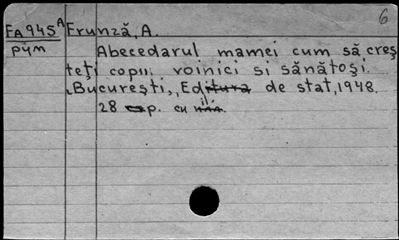 6
FA945A Frunză, A.
рум Abecedarul mamei cum să creș
teți copii voinici si sănătoși.
București, Editura de stat, 1948.
28 p. cu il.